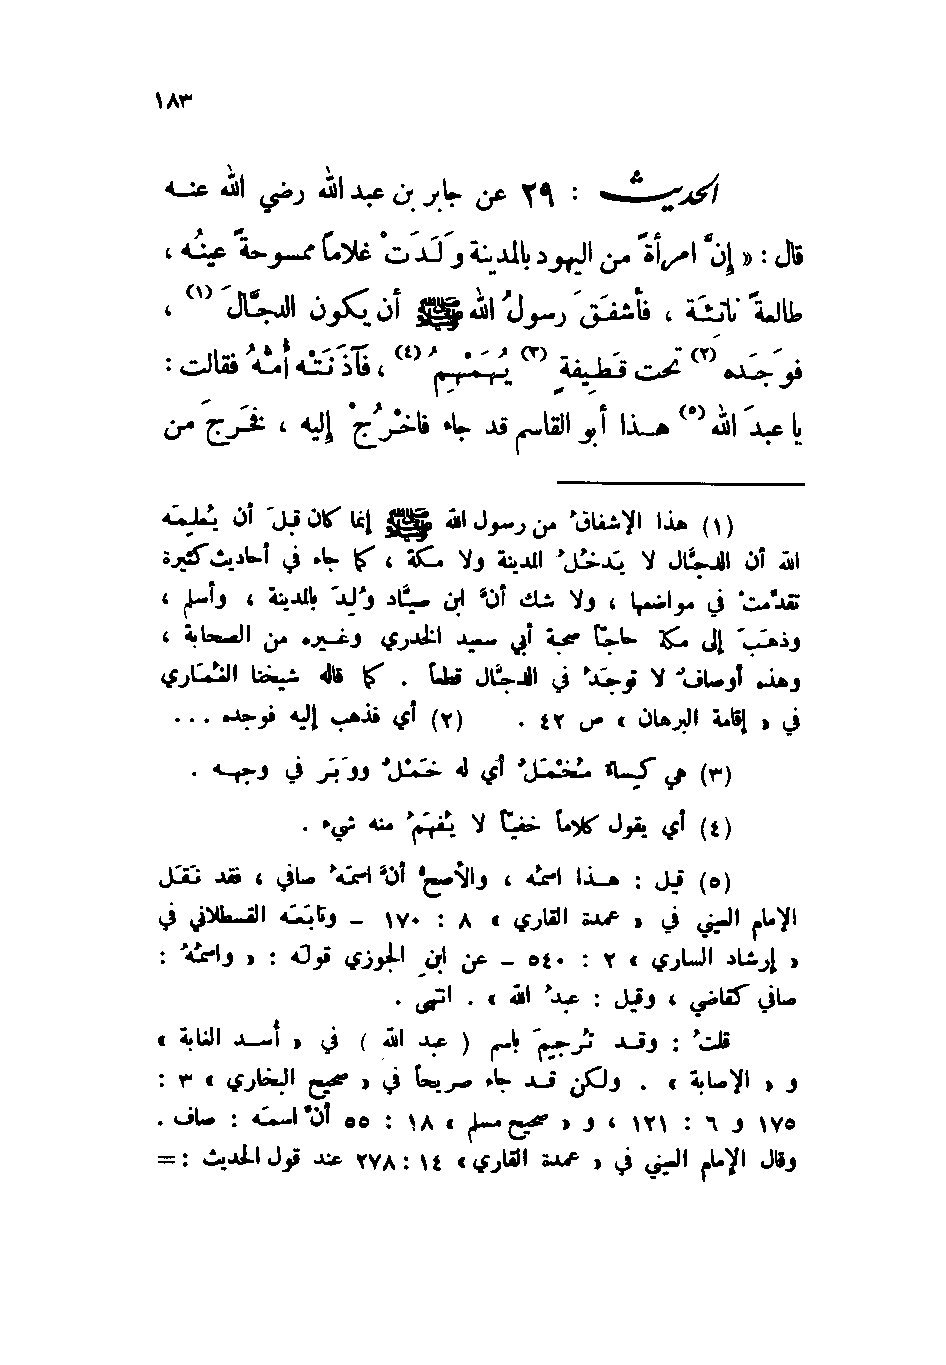 ١٨٣
الحديث : ٢٩ عن جابر بن عبد الله رضي الله عنه
قال : « إِنَّ امرأةً من اليهود بالمدينة وَلَدَتْ غلاماً ممسوحةً عينُه ،
طالعةً ناتئة ، فأشفَقَ رسولُ الله ﷺ أن يكون الدجَّالَ (١) ،
فوجَدَه (٢) تحت قَطيفةٍ (٣) يُهَمْهِمُ (٤) ، فآذَنَتْه أُمُّه فقالت :
يا عبدَ الله (٥) هذا أبو القاسم قد جاء فاخْرُجْ إليه ، فخَرجَ من
(١) هذا الإشفاقُ من رسول الله ﷺ إنما كان قبلَ أن يُعلِمَه
الله أن الدجَّال لا يَدخُلُ المدينة ولا مكة ، كما جاء في أحاديث كثيرة
تقدَّمتْ في مواضعها ، ولا شك أنَّ ابن صيَّاد وُلِدَ بالمدينة ، وأسلم ،
وذهبَ إلى مكة حاجّاً صحبة أبي سعيد الخدري وغيره من الصحابة ،
وهذه أوصافٌ لا توجَدُ في الدجَّال قطعاً . كما قاله شيخنا الغُمَاري
في « إقامة البرهان » ص ٤٢ . (٢) أي فذهب إليه فوجده ...
(٣) هي كِساءٌ مُخْمَلٌ أي له خَمْلٌ ووَبَرٌ في وجهه .
(٤) أي يقول كلاماً خفيّاً لا يُفهَمُ منه شيء .
(٥) قيل : هذا اسمُه ، والأصحُّ أنَّ اسمَهُ صافي ، فقد نَقَل
الإمام العيني في « عمدة القاري » ٨ : ١٧٠ – وتابَعَه القسطلاني في
« إرشاد الساري » ٢ : ٥٤٠ – عن ابنِ الجوزي قولَه : « واسمُهُ :
صافي كقاضي ، وقيل : عبدُ الله » . انتهى .
قلتُ : وقد تُرجِمَ باسم ( عبد الله ) في « أُسد الغابة »
و « الإصابة » . ولكن قد جاء صريحاً في « صحيح البخاري » ٣ :
١٧٥ و ٦ : ١٢١ ، و « صحيح مسلم » ١٨ : ٥٥ أنَّ اسمَه : صاف .
وقال الإمام العيني في « عمدة القاري » ١٤ : ٢٧٨ عند قول الحديث : =